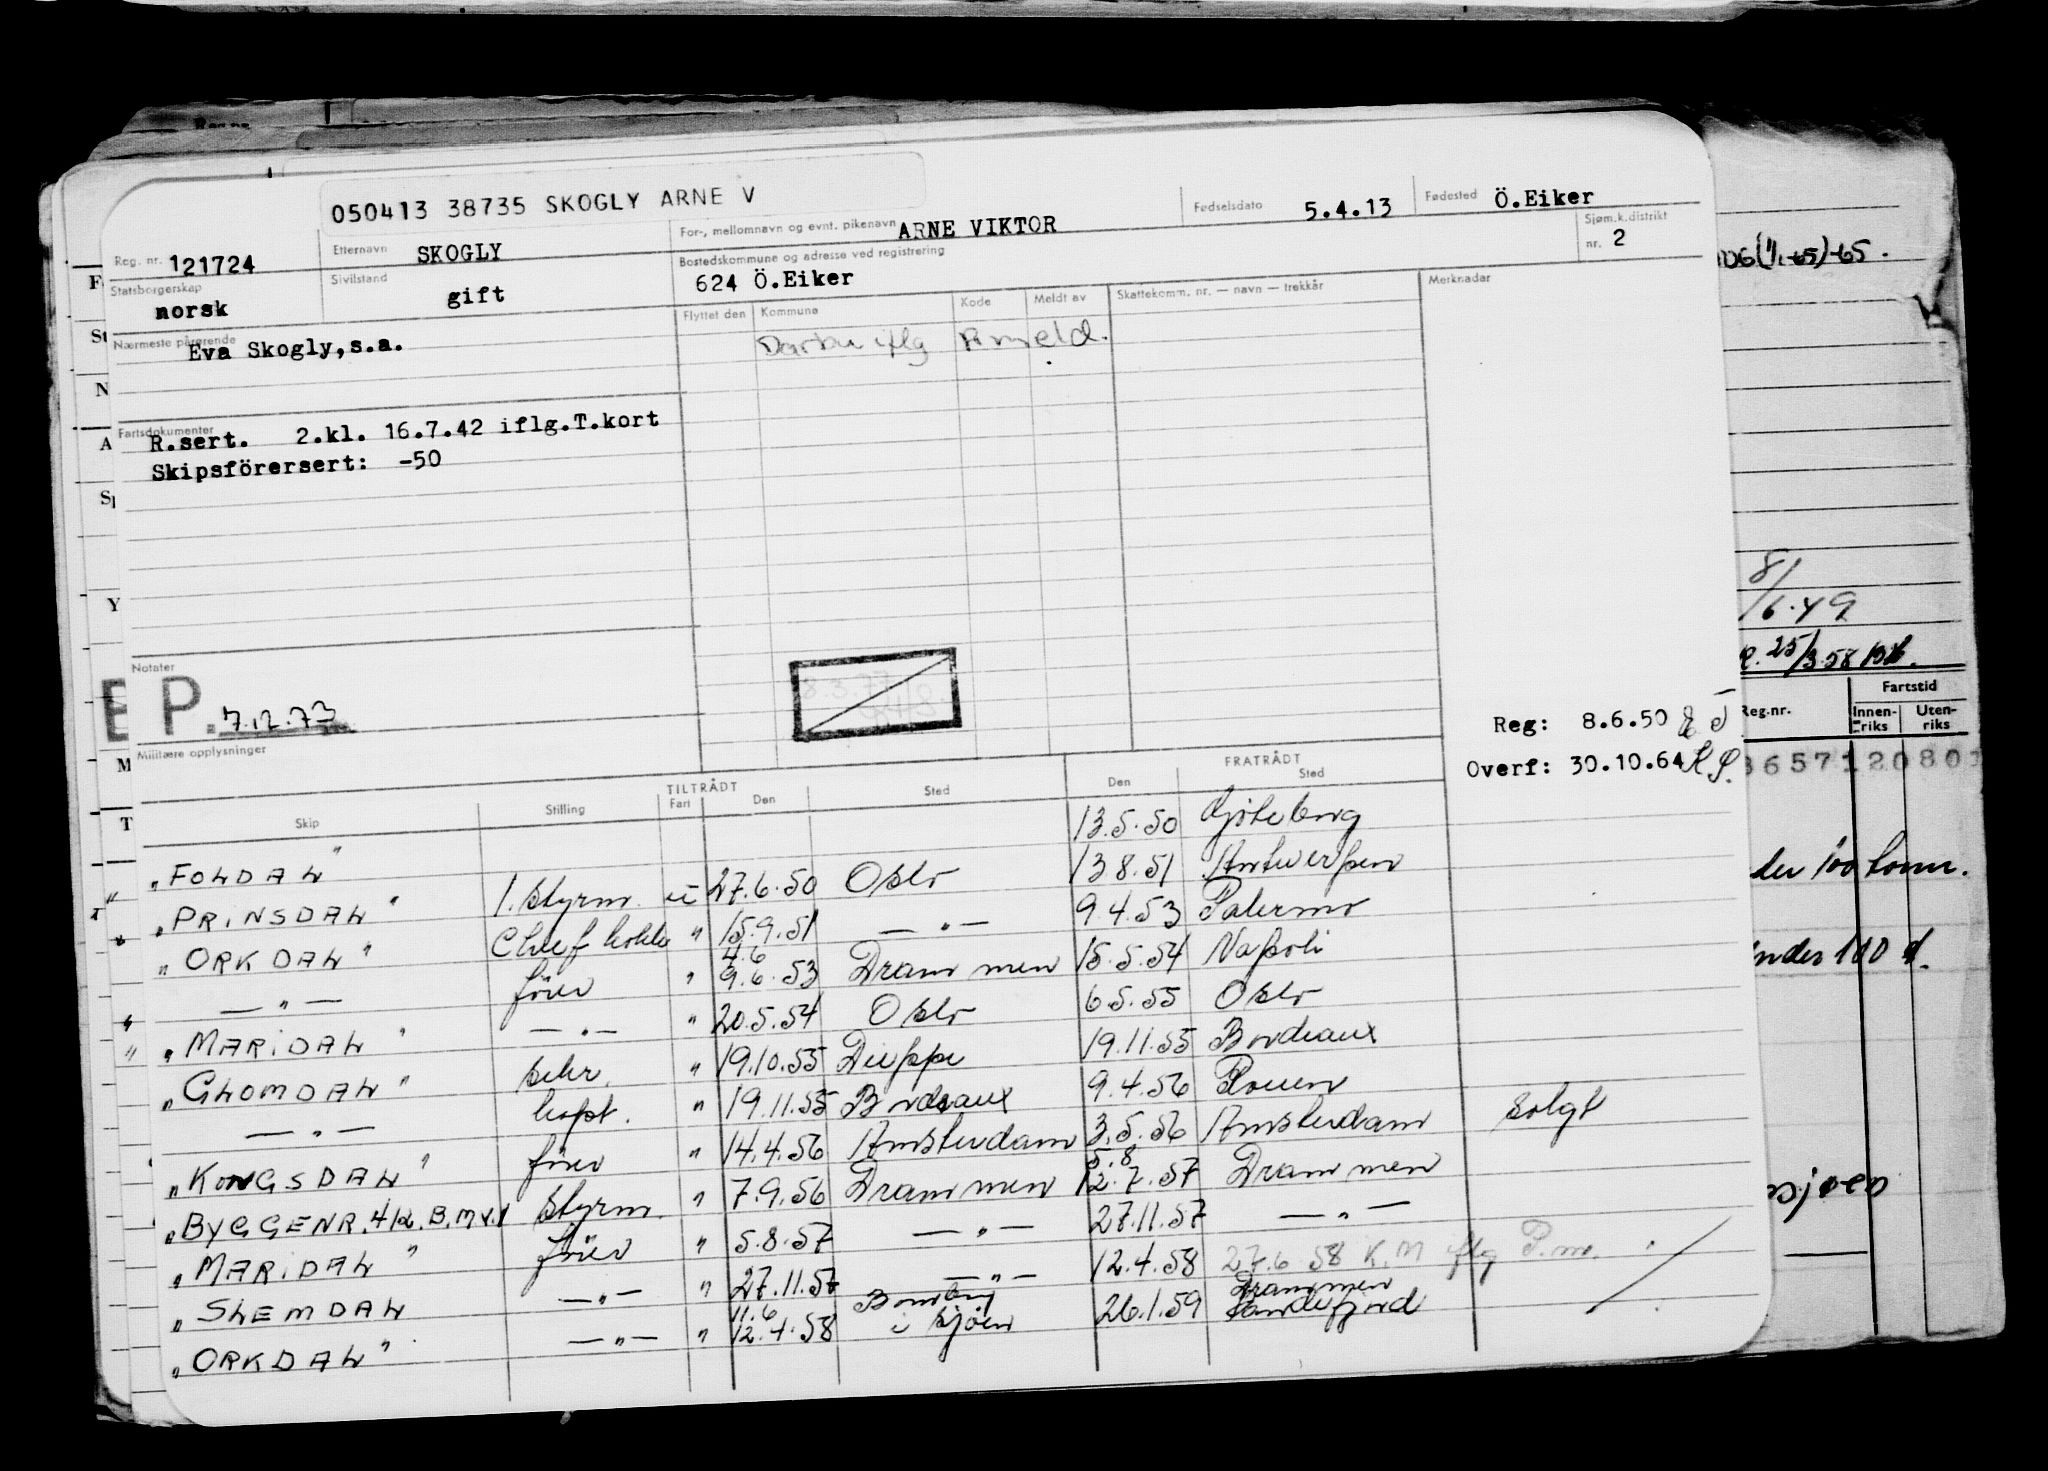 050413 38735 SKOGLY ARNE V
Reg. nr. 121724
Etternavn SKOGLY
For-, mellomnavn og evnt. pikenavn ARNE VIKTOR
Fødselsdato 5.4.13
Fødested Ö.Eiker
Statsborgerskap norsk
Sivilstand gift
Bostedskommune og adresse ved registrering 624 Ö.Eiker
Sjøm.k.distrikt nr. 2
Nærmeste pårørende Eva Skogly,s.a.
Flyttet den Kommune Kode Meldt av Skattekomm. nr. — navn — trekkår Merknader
iflg
Fartsdokumenter
R.sert. 2.kl. 16.7.42 iflg.T.kort
Skipsförersert: -50
Notater
P. 7.12.73
Militære opplysninger
Reg: 8.6.50
Overf: 30.10.64
TILTRÅDT FRATRÅDT
Skip Stilling Fart Den Sted Den Sted
"FOLDAL" 13.5.50 Göteborg
"PRINSDAL" 1. styrm. u 27.6.50 Oslo 13.8.51 Antwerpen
"ORKDAL" Chief " 15.9.51 — " — 9.4.53 Palermo
— " — förer " 4.6 9.6.53 Drammen 15.5.54 Napoli
"MARIDAL" — " — " 20.5.54 Oslo 6.5.55 Oslo
"GLOMDAL" " 19.10.55 Dieppe 19.11.55 Bordeaux
— " — kapt. " 19.11.55 Bordeaux 9.4.56 Rouen
"KONGSDAL" förer " 14.4.56 Amsterdam 3.5.56 Amsterdam solgt
"BYGGENR. 412. B.M.V." styrm. " 7.9.56 Drammen 5.8 12.7.57 Drammen
"MARIDAL" förer " 5.8.57 — " — 27.11.57 — " —
"SLEMDAL — " — " 27.11.57 — " — 12.4.58 27.6 58 K.M iflg P.m.
"ORKDAL" — " — " 11.6 12.4.58 i sjöen 26.1.59 Drammen Sandefjord
8/6.49
25/3.58
Reg.nr. Fartstid
Innenriks Utenriks
3657120801
100 tonn.
under 100 t.